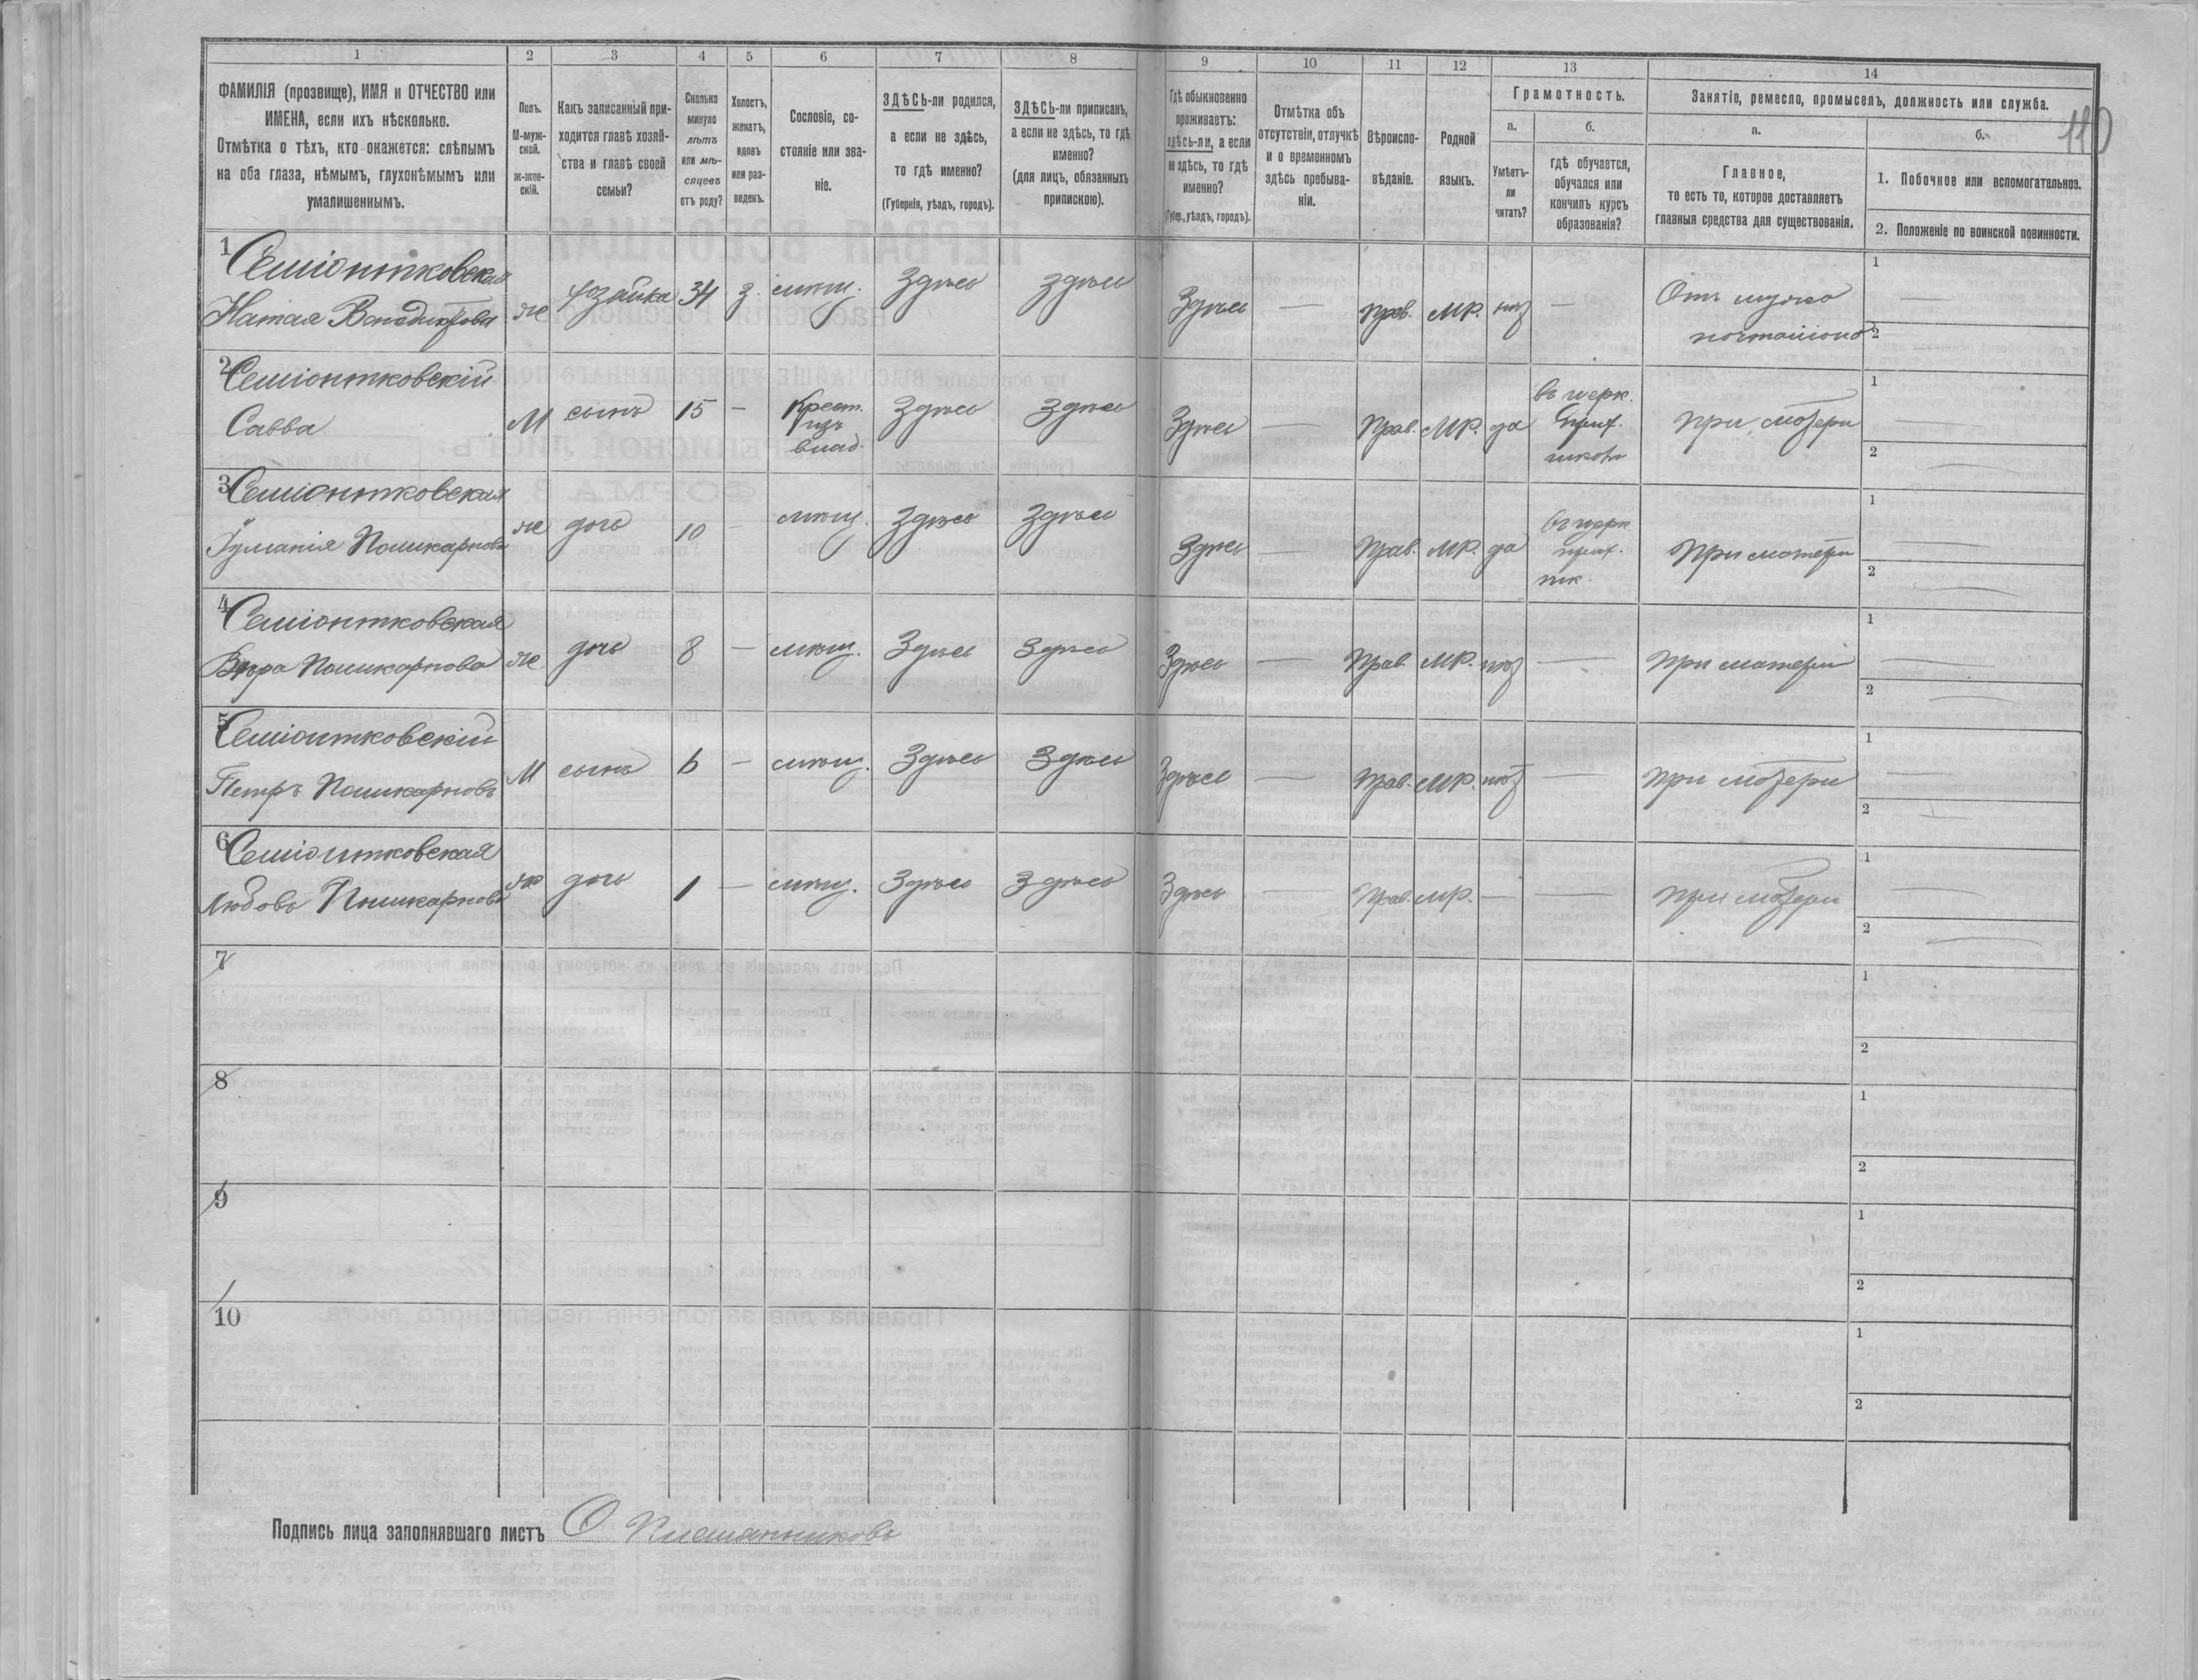 1 2 3 4 5 6 7 8 9 10 11 12 13 14
ФАМИЛІЯ (прозвище), ИМЯ и ОТЧЕСТВО или
ИМЕНА, если ихъ нѣсколько.
Отмѣтка о тѣхъ, кто окажется: слѣпымъ
на оба глаза, нѣмымъ, глухонѣмымъ или
умалишеннымъ.
Полъ.
М-муж-
ской.
ж-жен-
скій.
Какъ записанный при-
ходится главѣ хозяй-
ства и главѣ своей
семьи?
Сколько
минуло
лѣтъ
или мѣ-
сяцевъ
отъ роду?
Холостъ,
женатъ,
вдовъ
или раз-
веденъ.
Сословіе, со-
стояніе или зва-
ніе.
ЗДѢСЬ-ли родился,
а если не здѣсь,
то гдѣ именно?
(Губернія, уѣздъ, городъ).
ЗДѢСЬ-ли приписанъ,
а если не здѣсь, то гдѣ
именно?
(для лицъ, обязанныхъ
припискою).
Гдѣ обыкновенно
проживаетъ:
здѣсь-ли, а если
не здѣсь, то гдѣ
именно?
(Губер., уѣздъ, городъ).
Отмѣтка объ
отсутствіи, отлучкѣ
и о временномъ
здѣсь пребыва-
ніи.
Вѣроиспо-
вѣданіе.
Родной
языкъ.
Грамотность.
а.
Умѣетъ-
ли
читать?
б.
гдѣ обучается,
обучался или
кончилъ курсъ
образованія?
Занятіе, ремесло, промыселъ, должность или служба.
а.
Главное,
то есть то, которое доставляетъ
главныя средства для существованія.
б.
1. Побочное или вспомогательное.
2. Положеніе по воинской повинности.
110
1 Семіонтковская
хозяйка 34 з. мѣщ. Здѣсь Здѣсь Здѣсь — прав. мр. нѣт — Отъ мужа 1
ж
2
2 Семіонтковскій
Савва М сынъ 15 — Крест. Здѣсь Здѣсь Здѣсь — Прав. мр. да въ церк. При матери 1
изъ
влад.
прих.
школѣ
2
3 Семіонтковская
ж дочь 10 — мѣщ. Здѣсь Здѣсь Здѣсь — Прав. мр. да въ церк. При матери 1
прих.
шк.
2
4 Семіонтковская
Вѣра Поликарпова ж дочь 8 — мѣщ. Здѣсь Здѣсь Здѣсь — Прав. мр. нѣт — При матери 1
2
5 Семіонтковскій
Петръ Поликарповъ М сынъ 6 — мѣщ. Здѣсь Здѣсь Здѣсь — Прав. мр. нѣт — При матери 1
2
6 Семіонтковская
Любовь Поликарпова ж дочь 1 — мѣщ. Здѣсь Здѣсь Здѣсь — Прав. мр. — — При матери 1
2
7 1
2
8 1
2
9 1
2
10 1
2
Подпись лица заполнявшаго листъ